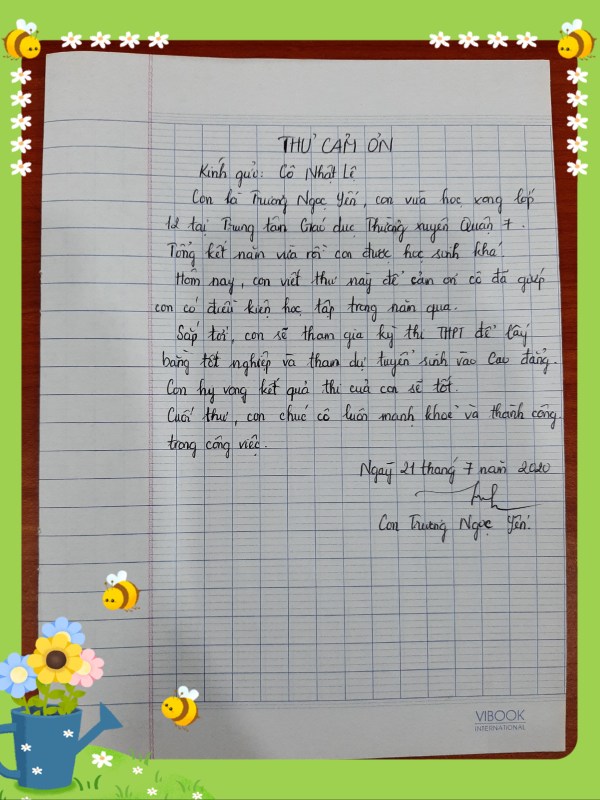 THƯ CẢM ƠN
Kính gửi: Cô Nhật Lê
Con là Trương Ngọc Yến, con vừa học xong lớp
12 tại Trung tâm Giáo dục Thường xuyên Quận 7.
Tổng kết năm vừa rồi con được học sinh khá.
Hôm nay, con viết thư này để cảm ơn cô đã giúp
con có điều kiện học tập trong năm qua.
Sắp tới, con sẽ tham gia kỳ thi THPT để lấy
bằng tốt nghiệp và tham dự tuyển sinh vào Cao đẳng.
Con hy vọng kết quả thi của con sẽ tốt.
Cuối thư, con chúc cô luôn mạnh khoẻ và thành công
trong công việc.
Ngày 21 tháng 7 năm 2020
Con Trương Ngọc Yến.
VIBOOK
INTERNATIONAL